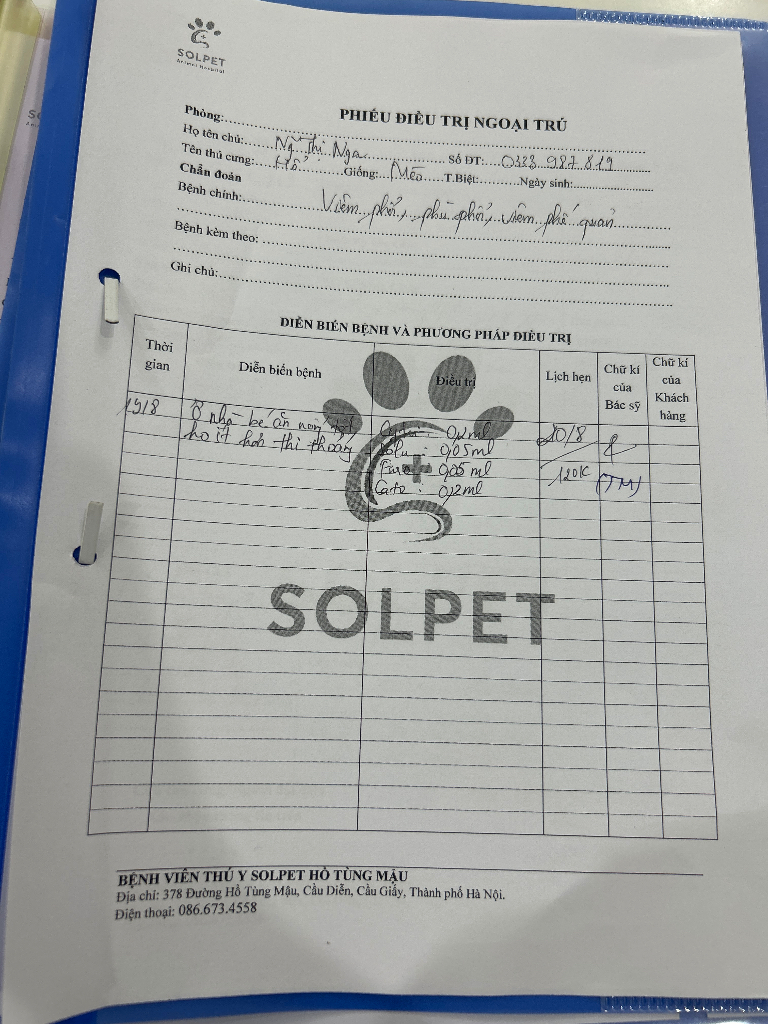 SOLPET
Animal Hospital
PHIẾU ĐIỀU TRỊ NGOẠI TRÚ
Phòng:
Họ tên chủ: Ng Thị Nga Số ĐT: 0323.987.819
Tên thú cưng: Hổ Giống: Mèo T.Biệt: Ngày sinh:
Chẩn đoán
Bệnh chính: Viêm phổi, phù phổi, viêm phế quản
Bệnh kèm theo:
Ghi chú:
DIỄN BIẾN BỆNH VÀ PHƯƠNG PHÁP ĐIỀU TRỊ
Thời gian Diễn biến bệnh Điều trị Lịch hẹn Chữ kí của Bác sỹ Chữ kí của Khách hàng
19/8 Ở nhà bé ăn 0,2ml 20/8
ho ít hơn thi thoảng Solu : 0,05ml
Furo : 0,05 ml 120K (TM)
Cato : 0,12ml
SOLPET
BỆNH VIỆN THÚ Y SOLPET HỒ TÙNG MẬU
Địa chỉ: 378 Đường Hồ Tùng Mậu, Cầu Diễn, Cầu Giấy, Thành phố Hà Nội.
Điện thoại: 086.673.4558